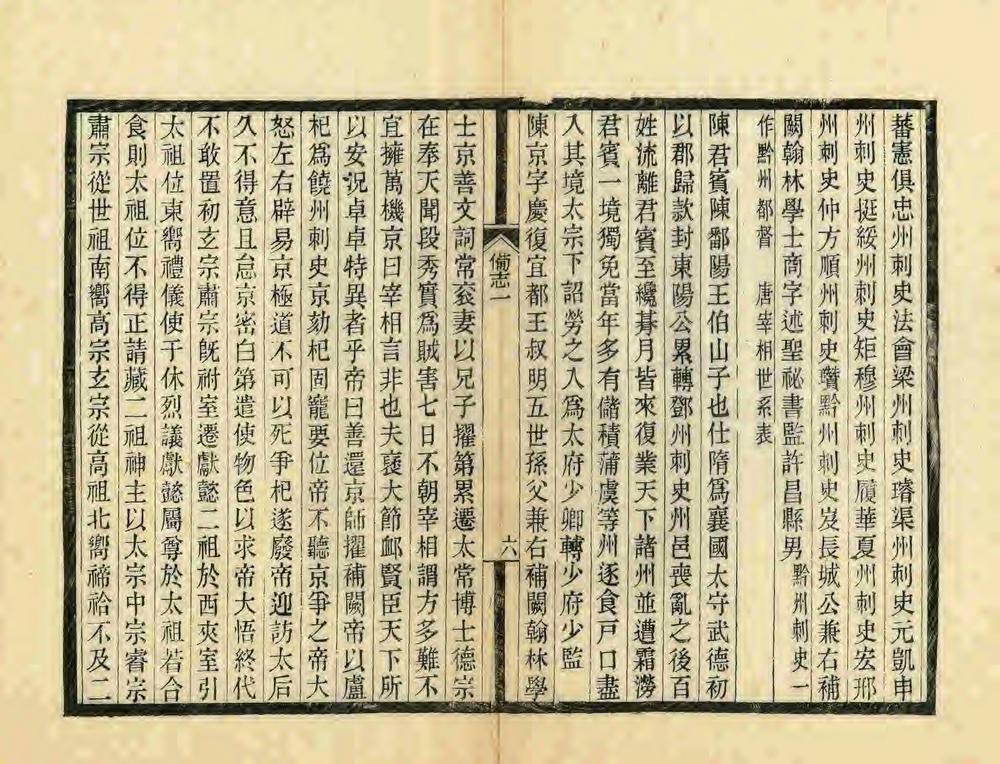 蕃憲俱忠州刺史法會梁州刺史璿渠州刺史元凱申
州刺史挺綏州刺史矩穆州刺史履華夏州刺史宏邢
州刺史仲方順州刺史瓚黔州刺史岌長城公兼右補
闕翰林學士商字述聖祕書監許昌縣男 黔州刺史一
作黔州都督 唐宰相世系表
陳君賓陳鄱陽王伯山子也仕隋爲襄國太守武德初
以郡歸款封東陽公累轉鄧州刺史州邑喪亂之後百
姓流離君賓至纔朞月皆來復業天下諸州並遭霜澇
君賓一境獨免當年多有儲積蒲虞等州逐食戸口盡
入其境太宗下詔勞之入爲太府少卿轉少府少監
陳京字慶復宜都王叔明五世孫父兼右補闕翰林學
備志一
六
士京善文詞常衮妻以兄子擢第累遷太常博士德宗
在奉天聞段秀實爲賊害七日不朝宰相謂方多難不
宜擁萬機京曰宰相言非也夫襃大節卹賢臣天下所
以安況卓卓特異者乎帝曰善還京師擢補闕帝以盧
杞爲饒州刺史京劾杞固寵要位帝不聽京爭之帝大
怒左右辟易京極道不可以死爭杞遂廢帝迎訪太后
久不得意且怠京密白第遣使物色以求帝大悟終代
不敢置初玄宗肅宗旣祔室遷獻懿二祖於西夾室引
太祖位東嚮禮儀使于休烈議獻懿屬尊於太祖若合
食則太祖位不得正請藏二祖神主以太宗中宗睿宗
肅宗從世祖南嚮高宗玄宗從高祖北嚮禘祫不及二